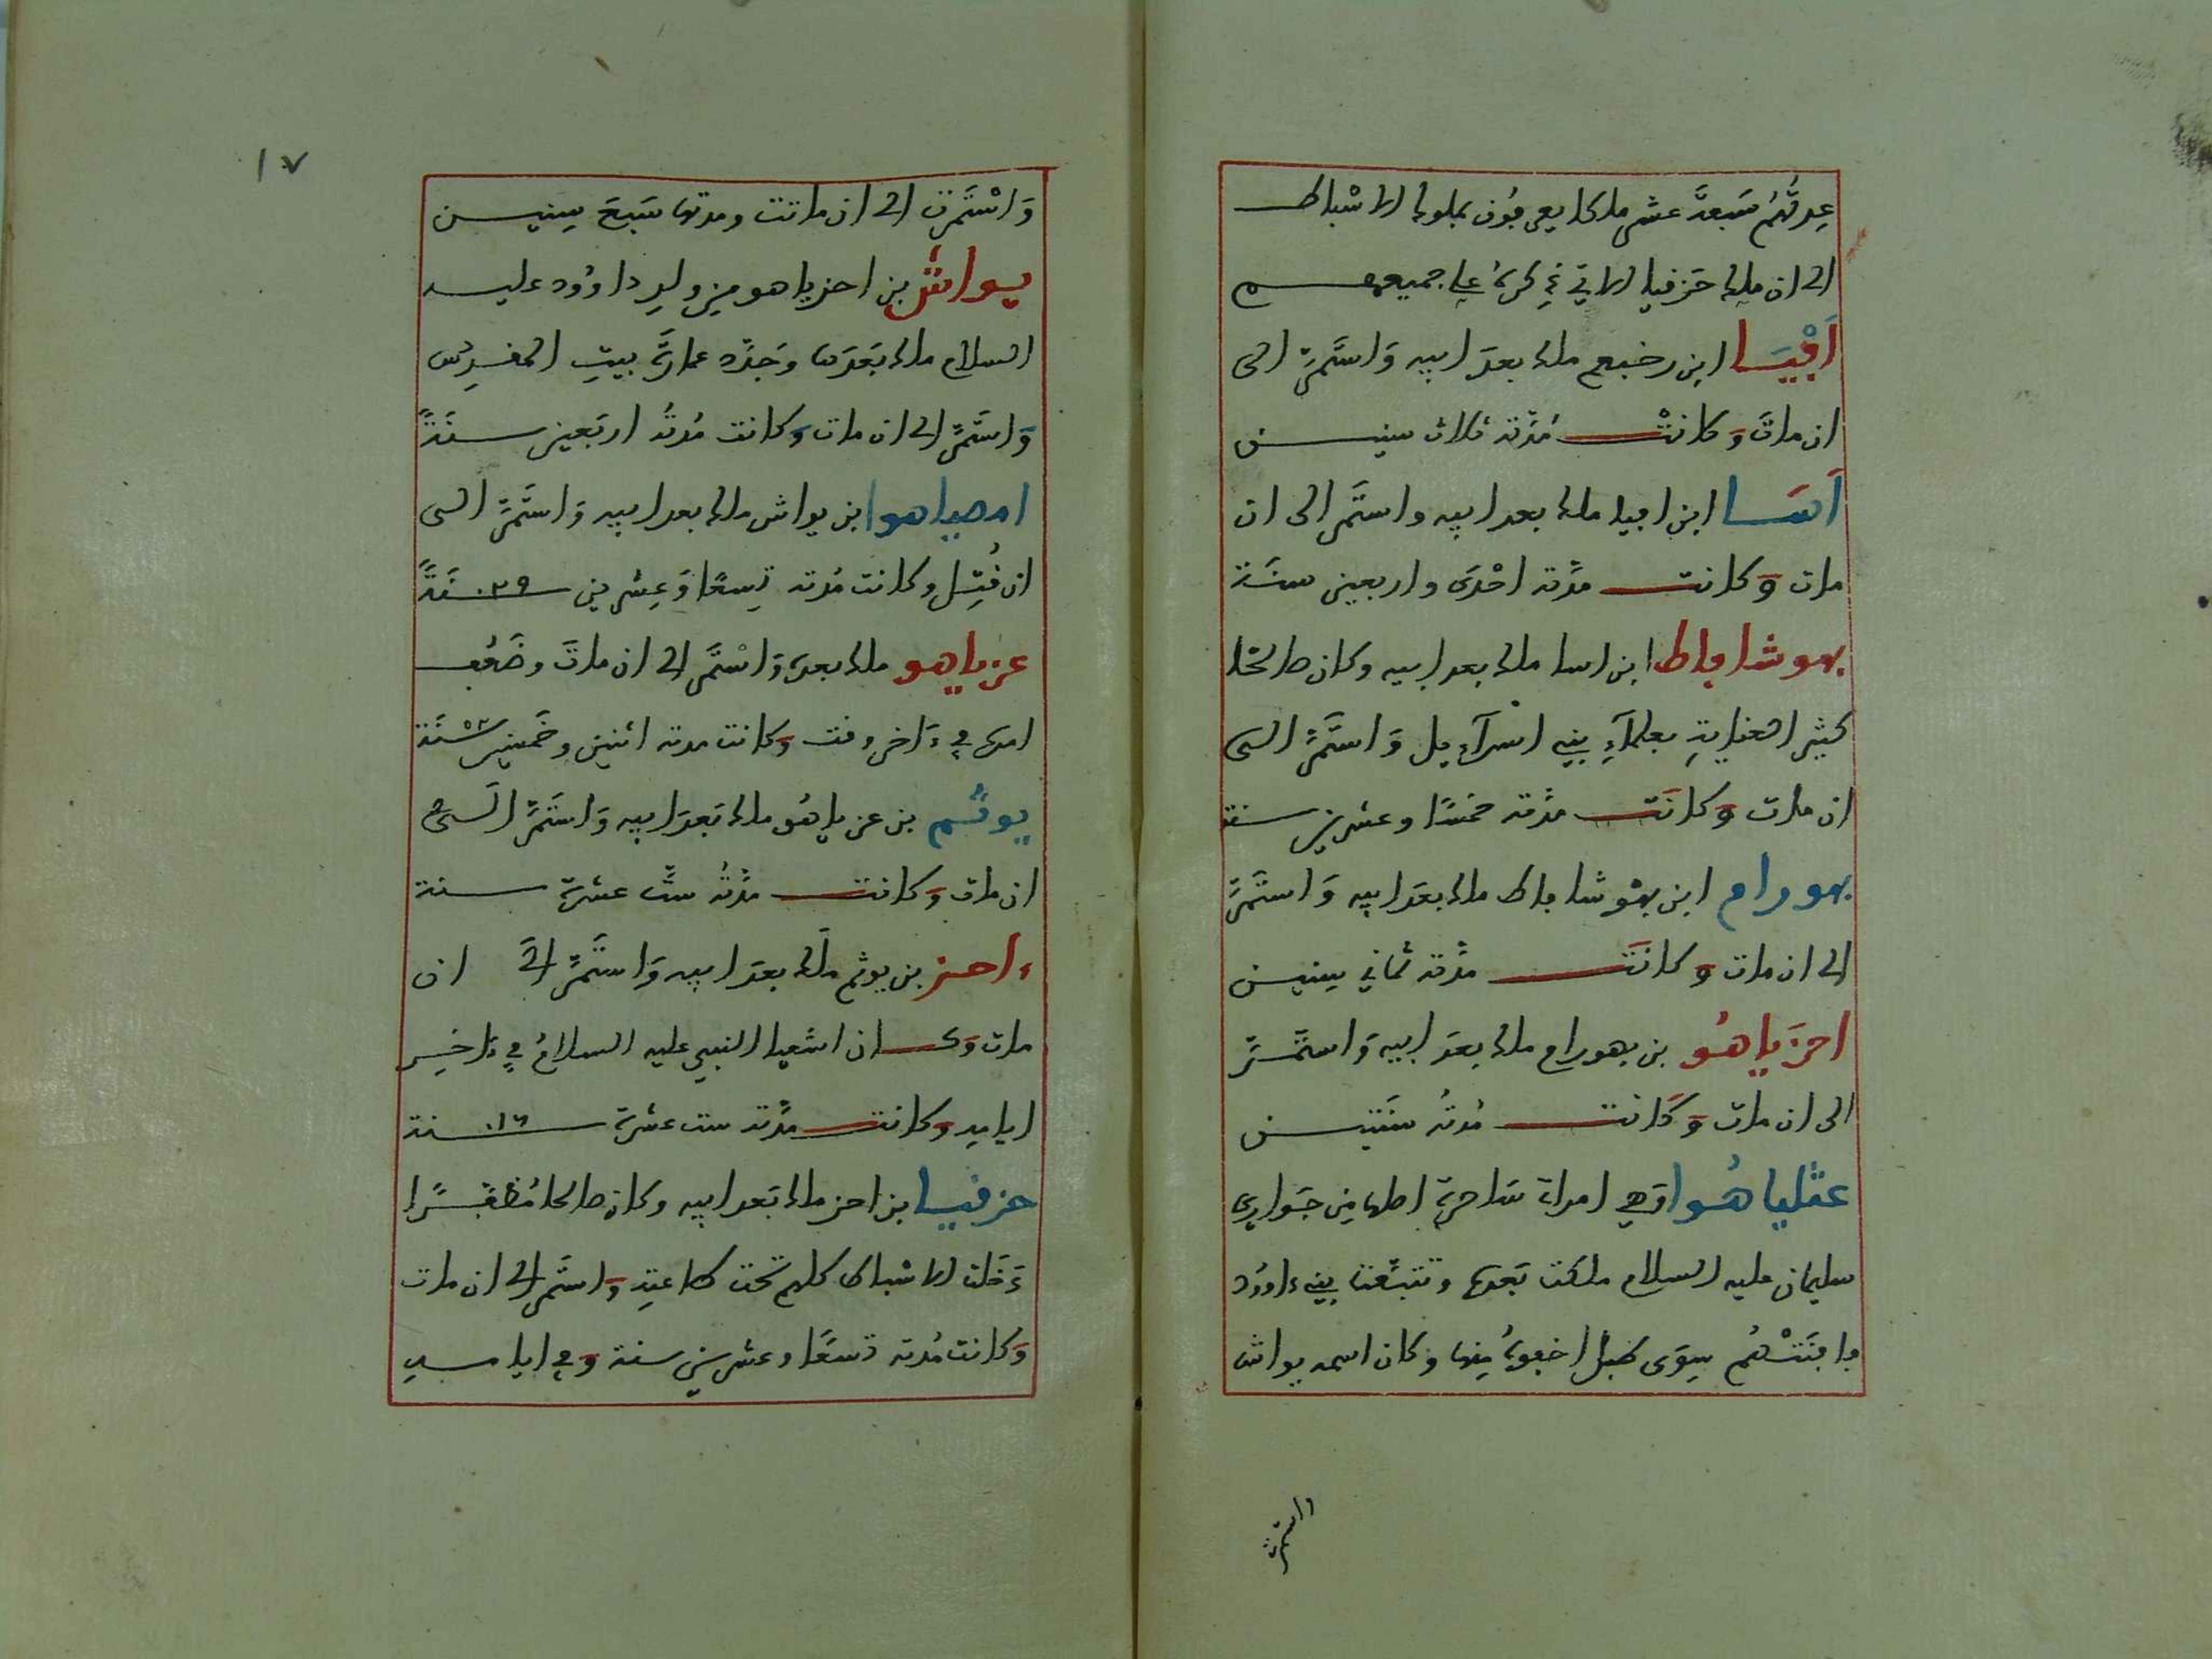 عِدتُهُم سَبعةَ عشر ملكا يعرفُون بملوك الاسْباط
الى ان ملك حَزقيا الاتي ذِكرهُ على جميعهم
اَفْيَا ابن رخبعم ملك بعدَ ابيه وَاستَمرّ الى
ان ماتَ وَكانتْ مُدَّته ثلاث سنين
اَسَا ابن ابيا ملك بعد ابيه واستَمر الى ان
مات وَكانت مدَّته احْدَى واربعين سنَة
يهوشافاط ابن اسا ملك بعد ابيه وكان صالحًا
كثير العنايةِ بعلمآءِ بني اسرآءيل وَاستَمَرَّ الى
ان مات وَكانَت مدَّته خمسًا وعشرين سنة
يهورام ابن يهْوشافاط ملك بعدَ ابيه وَاستَمَرَّ
الى ان مات وَكانَت مدَّته ثماني سنين
احزَياهُو بن يهورام ملك بعدَ ابيه وَاستَمَرَّ
الى ان مات وَكَانت مُدتهُ سَنَتين
عثلياهُوا وَهي امراة سَاحرة اصلها مِن جَواري
سليمان عليه السلام ملكت بَعدَه وتتبَّعت بني داوُد
وافنَتْهُم سِوَى طفل اخفوهُ مِنها وكان اسمه يواش
واستمرت
١٧
وَاسْتَمَرّت الى ان ماتت ومدتها سَبعَ سِنين
يواش بن احزياهو مِن ولدِ داوُود عليه
السلام ملك بَعدَها وَجَدَّد عمارَة بيتِ المقدِس
وَاستَمَّر الى ان مات وَكانت مُدتُه اربَعين سنَةً
امصياهو ابن يواش ملك بعد ابيه وَاستَمَّر الى
ان قُتِل وكانت مُدته تِسعًا وَعِشرين ٢٩ سَنَةً
عزياهو ملك بعدهَ وَاسْتَمَر الى ان ماتَ وضَعُف
امره في ءَاخر وقت وَكانت مدته اثنين وخَمسين ٥٢ سَنَة
يوثَم بن عزياهُو ملك بَعدَ ابيه وَاستَمَرَّ الَى
ان مات وَكانت مدَّتهُ ستَّ عشرَة سنة
ءاحز بن يوثم ملَك بعدَ ابيه وَاستَمَرَّ الىَ ان
مات وَكان اشعيا النبي عليه السلامُ في ءَاخِر
ايامِه وَكانت مدَّته ست عشرَة ١٦ سنة
حزقيا بن احز ملك بَعد ابيه وكان صالحا مُظفَّرًا
دَخَلت الاسْباط كلهم تحت طاعتِه وَاستَمر الى ان مات
وَكانت مُدته تسعًا وعشرين سنة وَفي ايامه